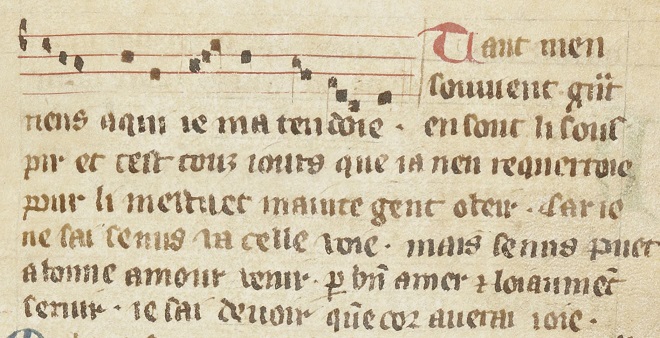 Tant men
souuient qn̄t
riens a qui ie matendoie · en sont li sous
pir et cest touz iours que ia nen requerroie
pour li mestuet mainte gent oïr · Car ie
ne sai se nus va celle voie · mais se nus puet
a bonne amour venir · p bn̄ amer ⁊ loiaumēt
seruir · ie sai de uoir qn̄ecoz auerai ioie ·